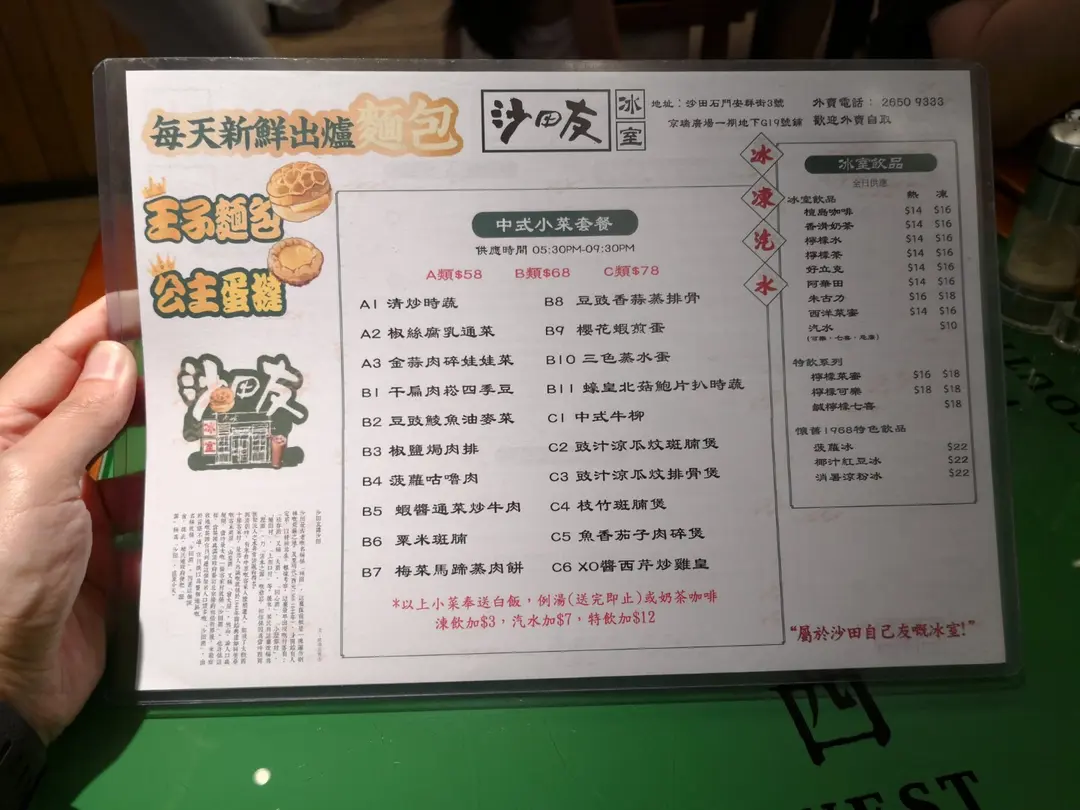 每天新鮮出爐麵包
沙田友
冰室
地址：沙田石門安群街3號
京瑞廣場一期地下G19號鋪
外賣電話： 2650 9333
歡迎外賣自取
王子麵包
公主蛋撻
沙田友
冰室
中式小菜套餐
供應時間 05:30PM-09:30PM
A類$58 B類$68 C類$78
A1 清炒時蔬
A2 椒絲腐乳通菜
A3 金蒜肉碎娃娃菜
B1 干扁肉崧四季豆
B2 豆豉鯪魚油麥菜
B3 椒鹽焗肉排
B4 菠蘿咕嚕肉
B5 蝦醬通菜炒牛肉
B6 粟米斑腩
B7 梅菜馬蹄蒸肉餅
B8 豆豉香蒜蒸排骨
B9 櫻花蝦煎蛋
B10 三色蒸水蛋
B11 蠔皇北菇鮑片扒時蔬
C1 中式牛柳
C2 豉汁涼瓜炆斑腩煲
C3 豉汁涼瓜炆排骨煲
C4 枝竹斑腩煲
C5 魚香茄子肉碎煲
C6 XO醬西芹炒雞皇
*以上小菜奉送白飯，例湯(送完即止)或奶茶咖啡
凍飲加$3，汽水加$7，特飲加$12
冰
凍
汽
水
冰室飲品
全日供應
冰室飲品 熱 凍
檀島咖啡 $14 $16
香滑奶茶 $14 $16
檸檬水 $14 $16
檸檬茶 $14 $16
好立克 $14 $16
阿華田 $14 $16
朱古力 $16 $18
西洋菜蜜 $14 $16
汽水 $10
特飲系列
檸檬菜蜜 $16 $18
檸檬可樂 $18 $18
鹹檸檬七喜 $18
懷舊1968特色飲品
菠蘿冰 $22
椰汁紅豆冰 $22
消暑涼粉冰 $22
“屬於沙田自己友嘅冰室!”
四
WEST
SOUTH